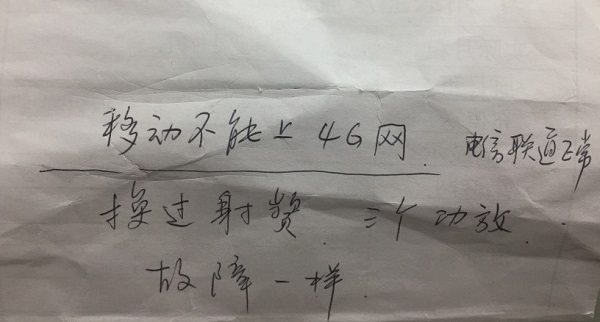 移动不能上4G网. 电信联通正常
换过射赞. 三个功放.
故障一样.